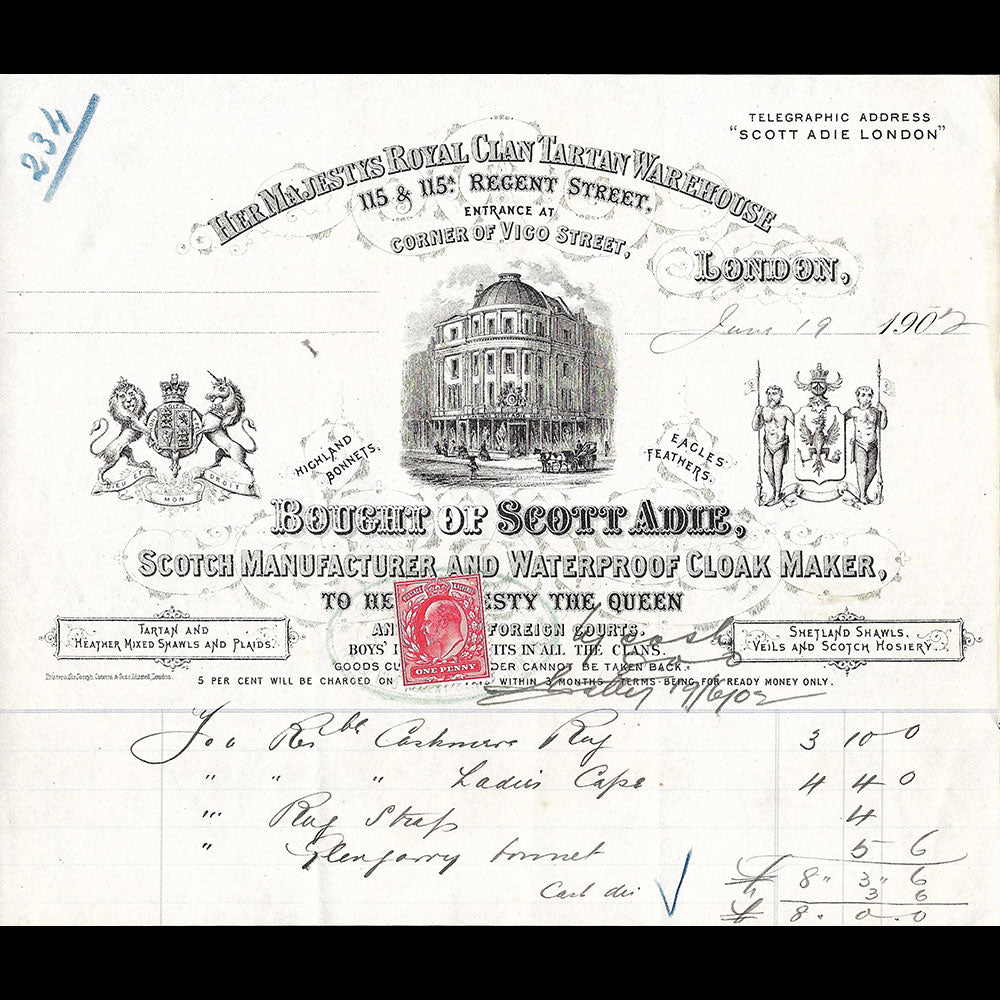 234
TELEGRAPHIC ADDRESS
"SCOTT ADIE LONDON"
HER MAJESTYS ROYAL CLAN TARTAN WAREHOUSE
115 & 115A REGENT STREET.
ENTRANCE AT
CORNER OF VIGO STREET,
LONDON,
June 19 1902
DIEU ET MON DROIT
HIGHLAND BONNETS.
EAGLES FEATHERS.
BOUGHT OF SCOTT ADIE,
SCOTCH MANUFACTURER AND WATERPROOF CLOAK MAKER,
TO HE ESTY THE QUEEN
AN FOREIGN COURTS.
BOYS' ITS IN ALL THE CLANS.
GOODS CU DER CANNOT BE TAKEN BACK.
5 PER CENT WILL BE CHARGED ON WITHIN 3 MONTHS TERMS BEING FOR READY MONEY ONLY.
TARTAN AND
HEATHER MIXED SHAWLS AND PLAIDS.
SHETLAND SHAWLS.
VEILS AND SCOTCH HOSIERY.
Printers, Sir Joseph Causton & Sons, Limited, London.
POSTAGE REVENUE
ONE PENNY
cash
19/6/02
Resble Cashmere Rug 3 10 0
" " " Ladies Cape. 4 4 0
" Rug Strap 4
" Glengarry bonnet 5 6
£ 8 " 3 " 6
Cash dis 3 6
£ 8 . 0 . 0